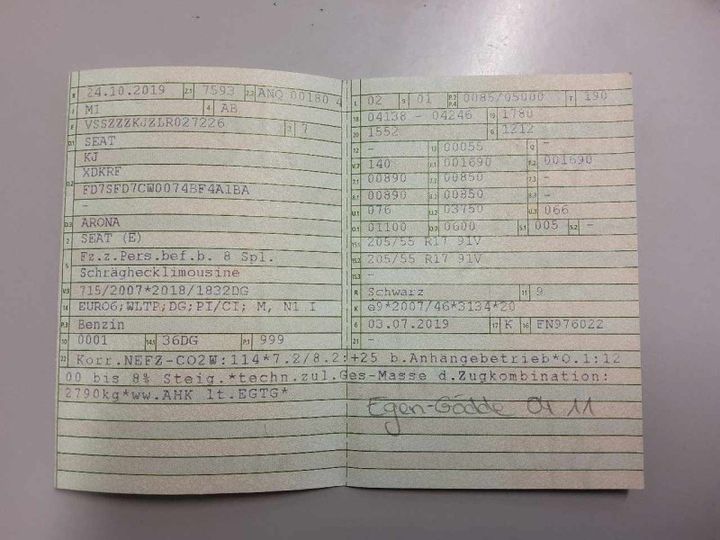 B 24.10.2019 2.1 7593 2.2 ANQ 00180 4
J M1 4 AB
E VSSZZZKJZLR027226 3 7
D.1 SEAT
KJ
D.2 XDKRF
FD7SFD7CW0074BF4A1BA
-
D.3 ARONA
2 SEAT (E)
5 Fz.z.Pers.bef.b. 8 Spl.
Schräghecklimousine
V.9 715/2007*2018/1832DG
14 EURO6;WLTP;DG;PI/CI; M, N1 I
P.3 Benzin
10 0001 14.1 36DG P.1 999
22 Korr.NEFZ-CO2W:114*7.2/8.2:+25 b.Anhängebetrieb*O.1:12
00 bis 8% Steig.*techn.zul.Ges-Masse d.Zugkombination:
2790kg*ww.AHK lt.EGTG*
L 02 9 01 P.2 P.4 0085/05000 T 190
18 04138 - 04246 19 1780
20 1552 G 1212
12 - 13 00055 Q -
V.7 140 F.1 001690 F.2 001690
7.1 00890 7.2 00850 7.3 -
8.1 00890 8.2 00850 8.3 -
U.1 076 U.2 03750 U.3 066
O.1 01100 O.2 0600 S.1 005 S.2 -
15.1 205/55 R17 91V
15.2 205/55 R17 91V
15.3 -
R Schwarz 11 9
K e9*2007/46*3134*20
6 03.07.2019 17 K 16 FN976022
21 -
Egen-Gödde